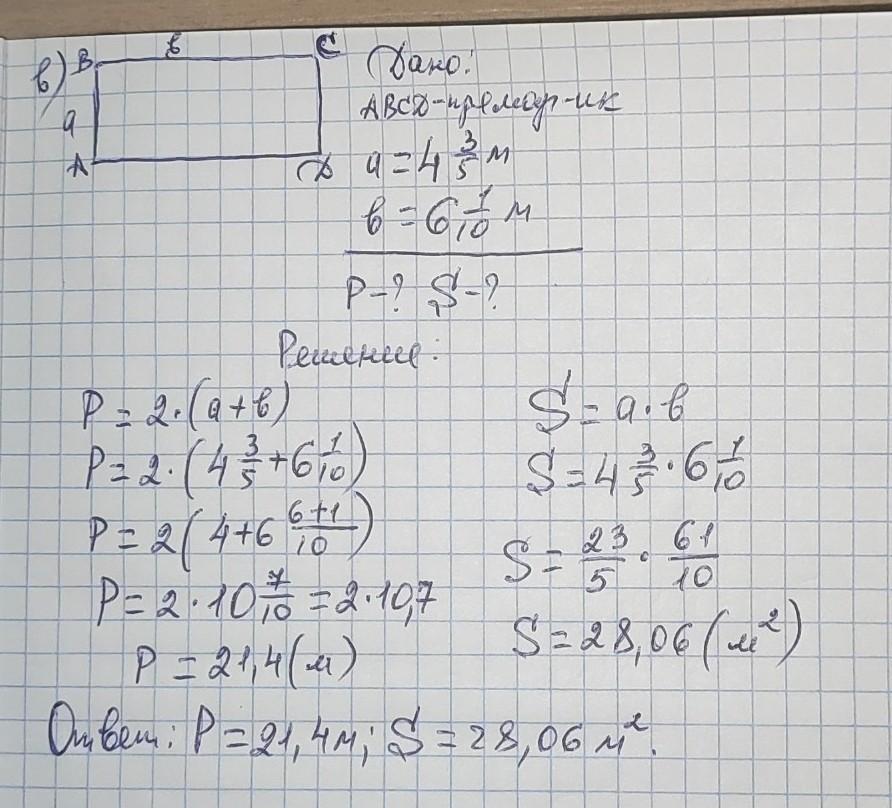 в) B в C
a
A D
Дано:
ABCD-прямоуг-ик
a = 4 3/5 м
в = 6 1/10 м
P-? S-?
Решение:
P = 2·(a+в)
P = 2·(4 3/5 + 6 1/10)
P = 2(4+6 (6+1)/10)
P = 2·10 7/10 = 2·10,7
P = 21,4(м)
S = a·в
S = 4 3/5 · 6 1/10
S = 23/5 · 61/10
S = 28,06 (м²)
Ответ: P = 21,4м; S = 28,06 м².